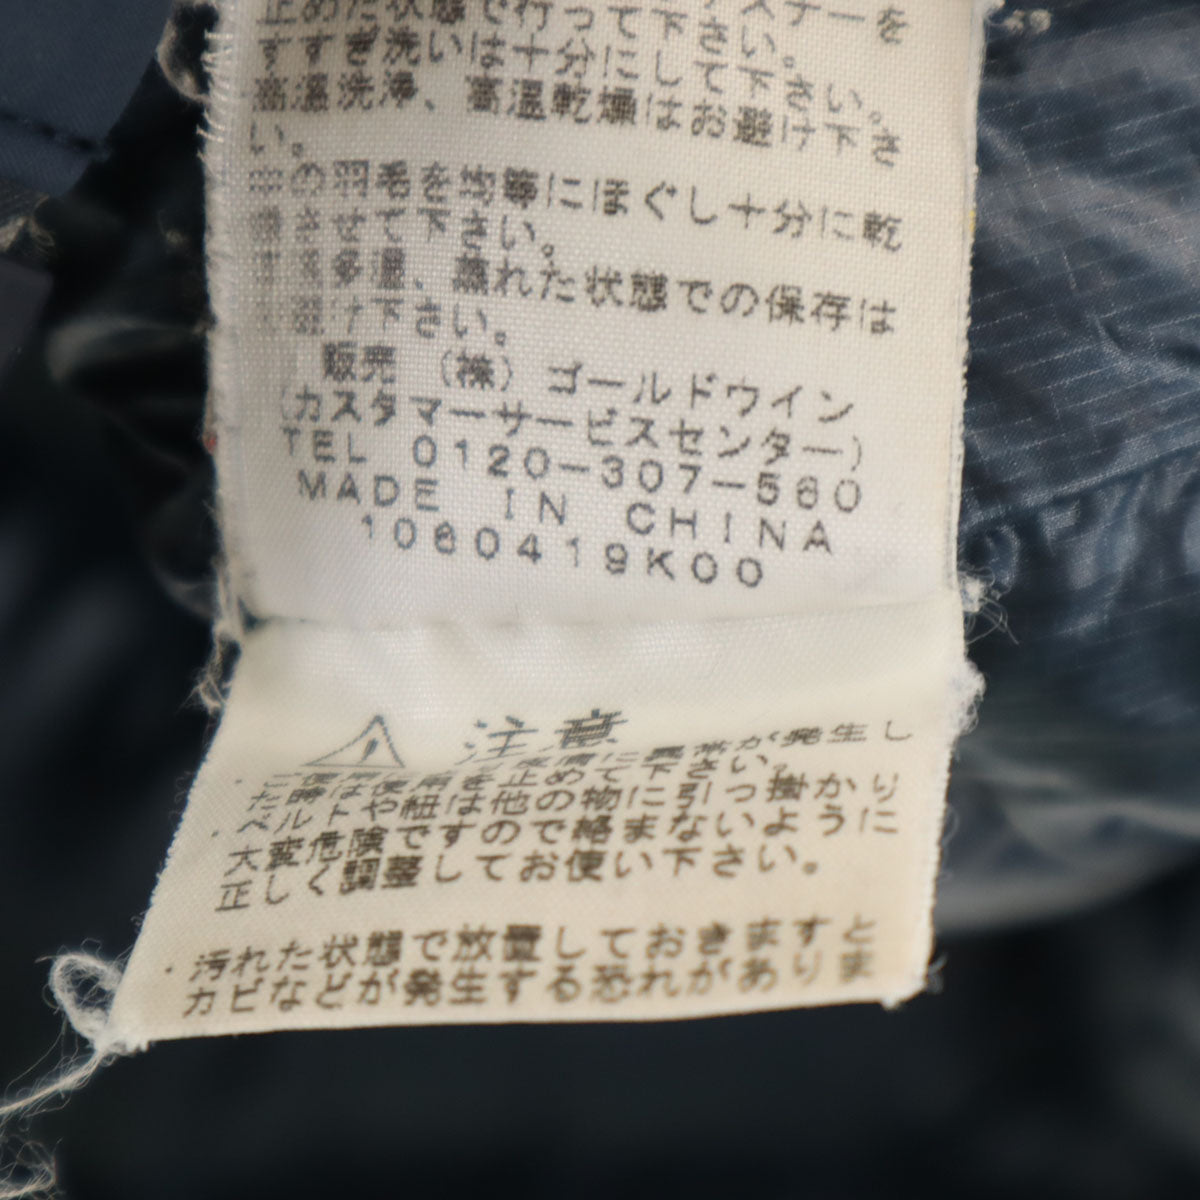 止めた状態で行って下さい。
すすぎ洗いは十分にして下さい。
高温洗浄、高温乾燥はお避け下さ
い。
中の羽毛を均等にほぐし十分に乾
燥させて下さい。
多湿、濡れた状態での保存は
避け下さい。
販売 (株) ゴールドウイン
(カスタマーサービスセンター)
TEL 0120-307-560
MADE IN CHINA
1060419K00
注意
が発生し
た時は使用を止めて下さい。
・ベルトや紐は他の物に引っ掛かり
大変危険ですので絡まないように
正しく調整してお使い下さい。
・汚れた状態で放置しておきますと
カビなどが発生する恐れがありま